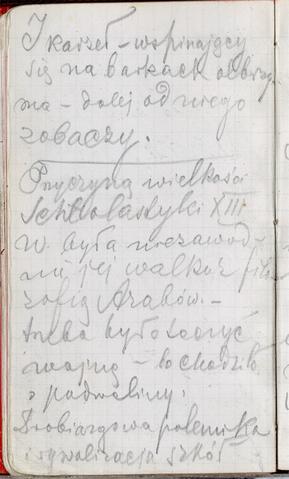 I karzeł – wspinający
się na barkach olbrzy-
ma – dalej od niego
zobaczy.
Przyczyną wielkości
Scholastyki XIII
w. była niezawod-
nie jej walka z filo
zofią Arabów. –
trzeba było toczyć
wojnę – bo chodziło
o podwaliny.
Drobiazgowa polemika
i rywalizacja szkół